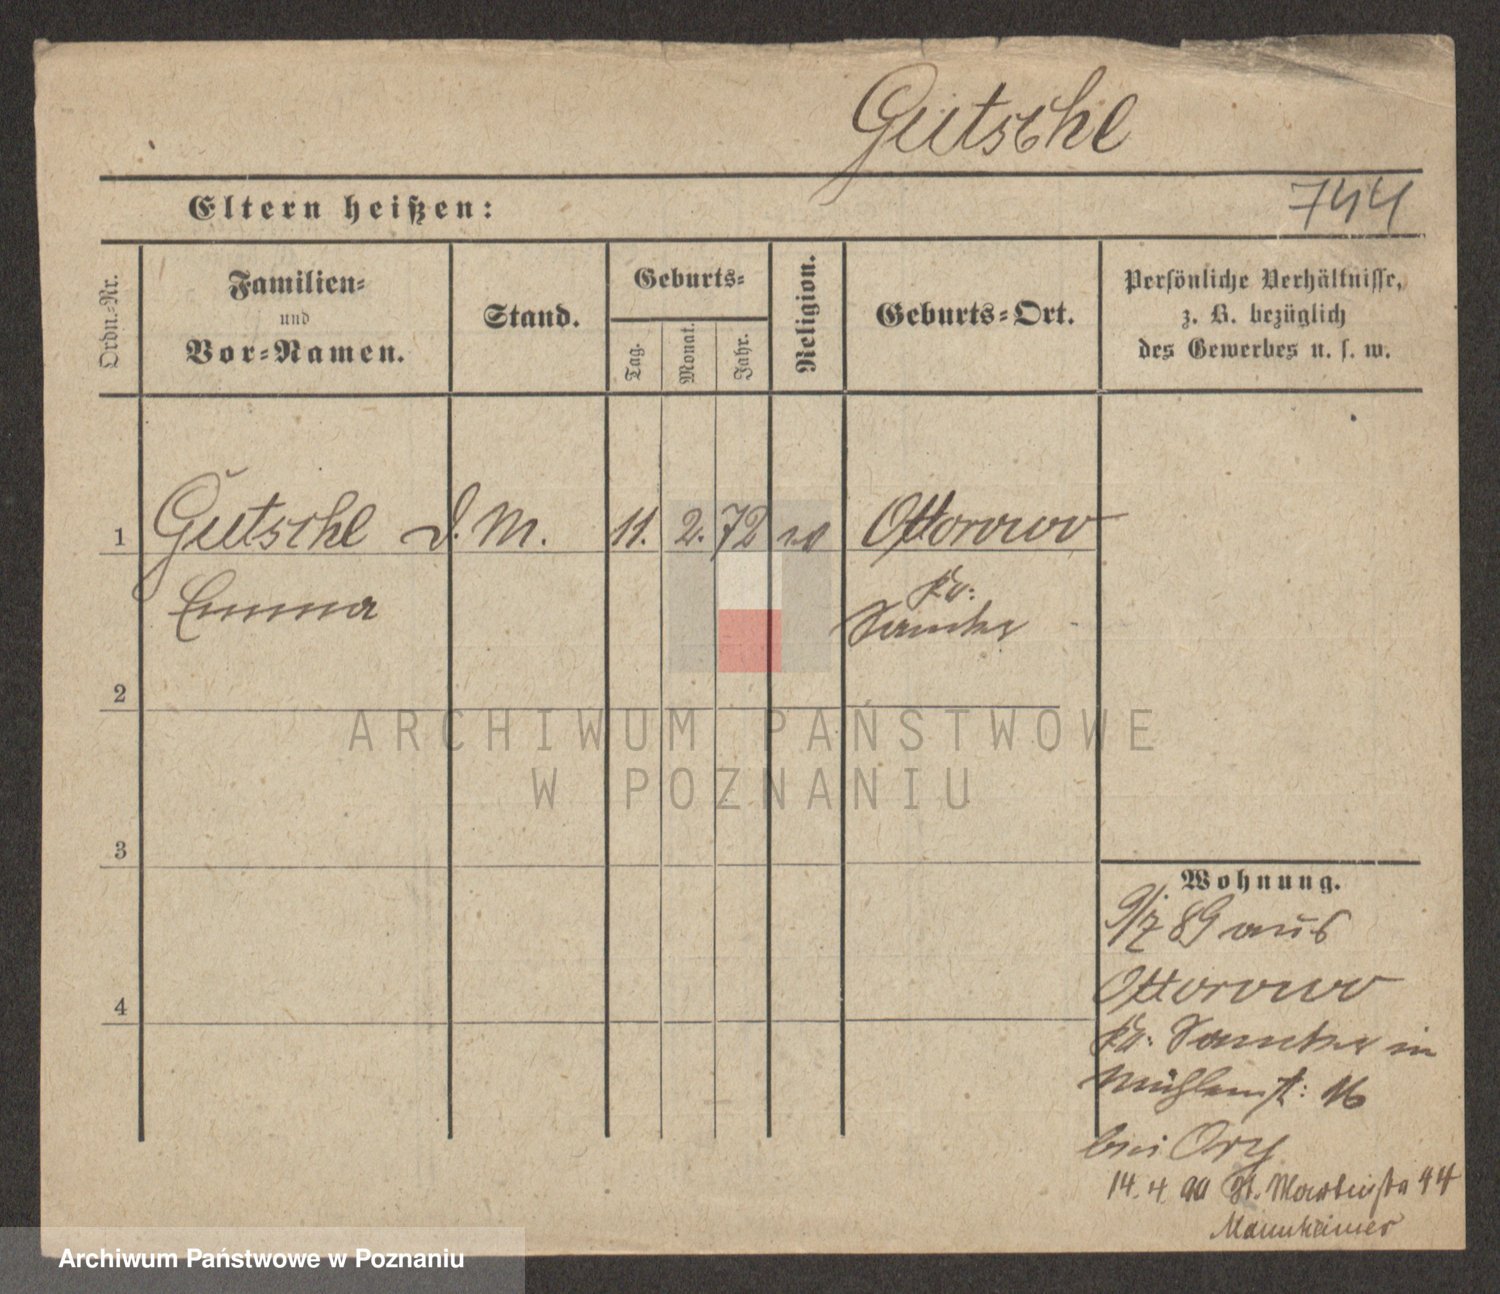 Gutsche
744
Eltern heißen:
Ordn.-Nr.
Familien-
und
Vor-Namen.
Stand.
Geburts-
Tag.
Monat.
Jahr.
Religion.
Geburts-Ort.
Persönliche Verhältnisse,
z. B. bezüglich
des Gewerbes u. s. w.
1 Gutsche D. M. 11. 2. 72 Ottorowo
Emma Kr:
Samter
2
3
4
Wohnung.
9/7 89 aus
Ottorowo
Kr. Samter in
Mühlenst: 16
bei Ory
14. 4. 90 St. Martinstr 44
Mannheimer
ARCHIWUM PAŃSTWOWE
W POZNANIU
Archiwum Państwowe w Poznaniu